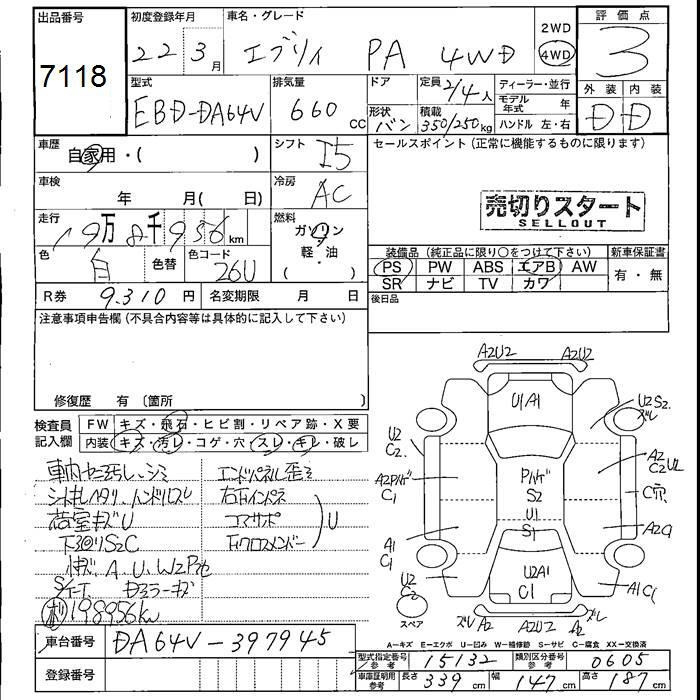 出品番号
7118
初度登録年月
22 3月
車名・グレード
エブリイ PA 4WD
2WD
4WD
評価点
3
型式
EBD-DA64V
排気量
660 cc
ドア
形状
バン
定員
2/4人
積載
350/250kg
ディーラー・並行
モデル年式 年
ハンドル 左・右
外装 内装
D D
車歴
自家用・( )
シフト
I5
セールスポイント(正常に機能するものに限ります)
車検
年 月( 日)
冷房
AC
売切りスタート
SELLOUT
走行
19万8千956km
燃料
ガソリン
軽・油
( )
色
白
色替
色コード
26U
装備品(純正品に限り○をつけて下さい)
新車保証書
PS PW ABS エアB AW
SR ナビ TV カワ
有・無
R券 9.310円
名変期限 月 日
後日品
注意事項申告欄(不具合内容等は具体的に記入して下さい)
修復歴 有〔箇所
検査員記入欄
FW キズ・飛石・ヒビ割・リペア跡・X要
内装 キズ・汚レ・コゲ・穴・スレ・キレ・破レ
車内セ云汚レ、シミ
荷室キズU
下回リS2C
A、U、W2
198956km
エンドパネル歪ミ
右下インパネ
コアサポ
下クロスメンバー
U
A2U2 A2U2
U1A1
U2S2
ズレ
U2
C2
A2
C2UL
A2
C1
S2
C穴
U1
S1
A1
C1
U2A1
C1
U2
C2
A1C1
スペア
ズレ A2 A2U2 A2 ズレ
A-キズ E-エクボ U-凹み W-補修跡 S-サビ C-腐食 XX-交換済
車台番号
DA64V-397945
登録番号
型式指定番号 参考 15132
類別区分番号 参考 0605
車庫証明用 参考 長さ 339cm 幅 147cm 高さ 187cm